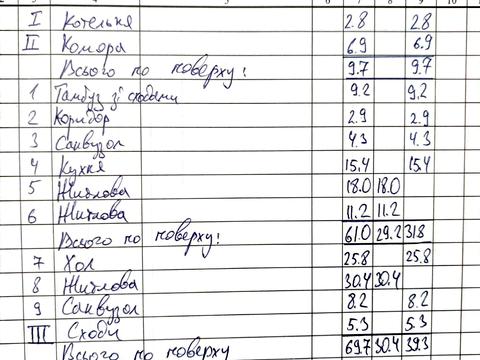 I Котельня 2.8 2.8
II Комора 6.9 6.9
Всього по поверху: 9.7 9.7
1 Тамбур зі сходами 9.2 9.2
2 Коридор 2.9 2.9
3 Санвузол 4.3 4.3
4 Кухня 15.4 15.4
5 Житлова 18.0 18.0
6 Житлова 11.2 11.2
Всього по поверху: 61.0 29.2 31.8
7 Хол 25.8 25.8
8 Житлова 30.4 30.4
9 Санвузол 8.2 8.2
III Сходи 5.3 5.3
Всього по поверху 69.7 30.4 39.3